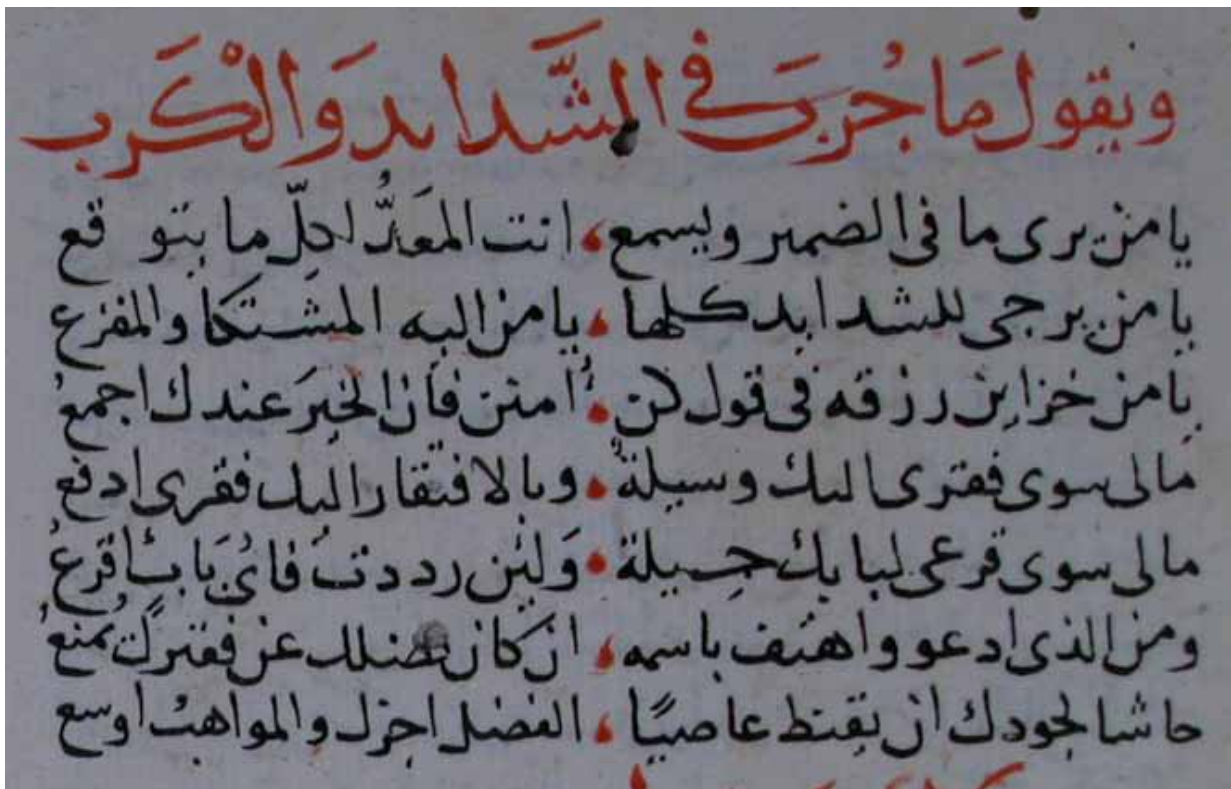 ويقول ما جُرب في الشَّدايد وَالْكَرب
يا من يرى ما فى الضمير ويسمع، انت المعَدُّ لكلّ ما يتوقع
يا من يرجى للشدايد كلها، يا من اليه المشتكا والمفزع
يا من خزاين رزقه فى قول كن، اُمنن فان الخيرَ عندك اجمعُ
مالى سوى فقرى اليك وسيلةٌ • وبالافتقار اليك فقرى ادفع
مالى سوى قرعى لبابك حيلة • وَلئن رددتُ فاىُّ بابٍ اقرعُ
ومن الذى ادعو واهتف باسمه، ان كان فضلك عن فقيرك يُمنعُ
حاشا لجودك ان يقنط عاصيًا، الفضل اجزل والمواهبُ اوسع